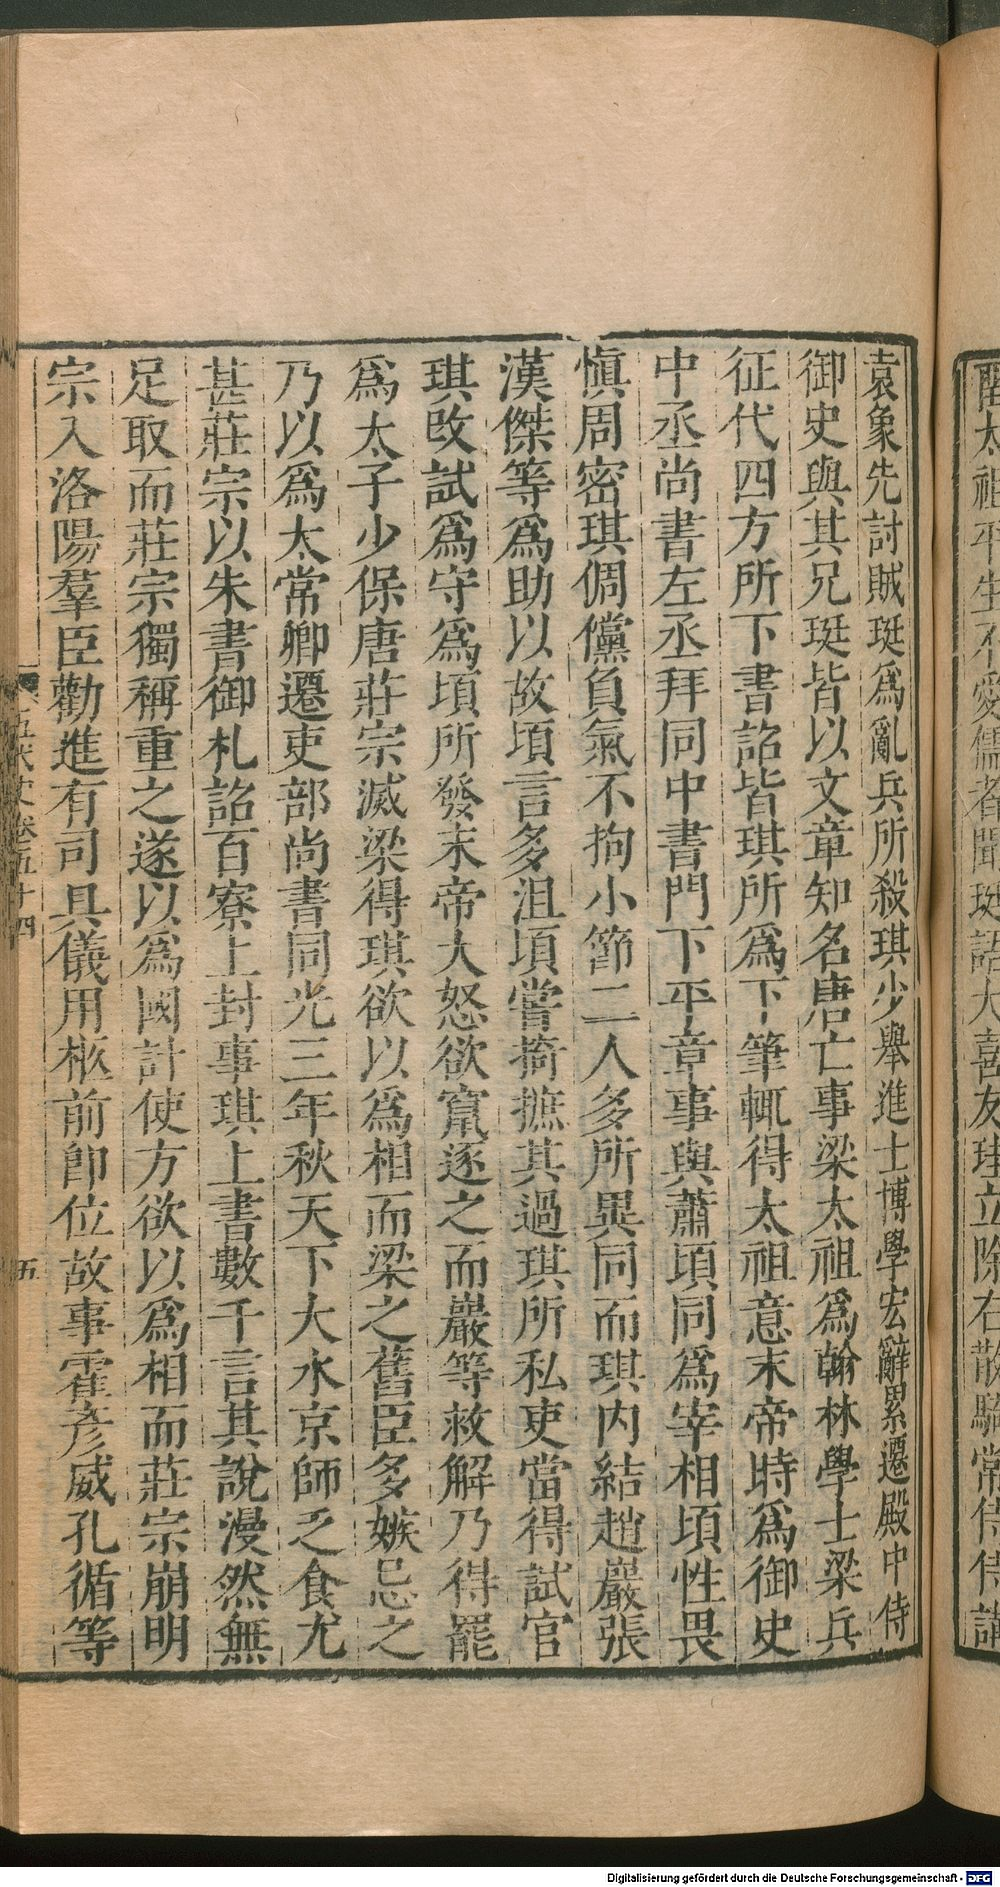 太祖平生不愛儒者聞珽語大喜友珪立除右散騎常侍侍講
袁象先討賊珽爲亂兵所殺琪少舉進士博學宏辭累遷殿中侍
御史與其兄珽皆以文章知名唐亡事梁太祖爲翰林學士梁兵
征代四方所下書詔皆琪所爲下筆輒得太祖意末帝時爲御史
中丞尚書左丞拜同中書門下平章事與蕭頃同爲宰相頃性畏
愼周密琪倜儻負氣不拘小節二人多所異同而琪內結趙巖張
漢傑等爲助以故頃言多沮頃嘗掎摭其過琪所私吏當得試官
琪改試爲守爲頃所發末帝大怒欲竄逐之而巖等救解乃得罷
爲太子少保唐莊宗滅梁得琪欲以爲相而梁之舊臣多嫉忌之
乃以爲太常卿遷吏部尚書同光三年秋天下大水京師乏食尤
甚莊宗以朱書御札詔百寮上封事琪上書數千言其說漫然無
足取而莊宗獨稱重之遂以爲國計使方欲以爲相而莊宗崩明
宗入洛陽羣臣勸進有司具儀用柩前卽位故事霍彥威孔循等
五代史卷五十四
五
Digitalisierung gefördert durch die Deutsche Forschungsgemeinschaft - DFG